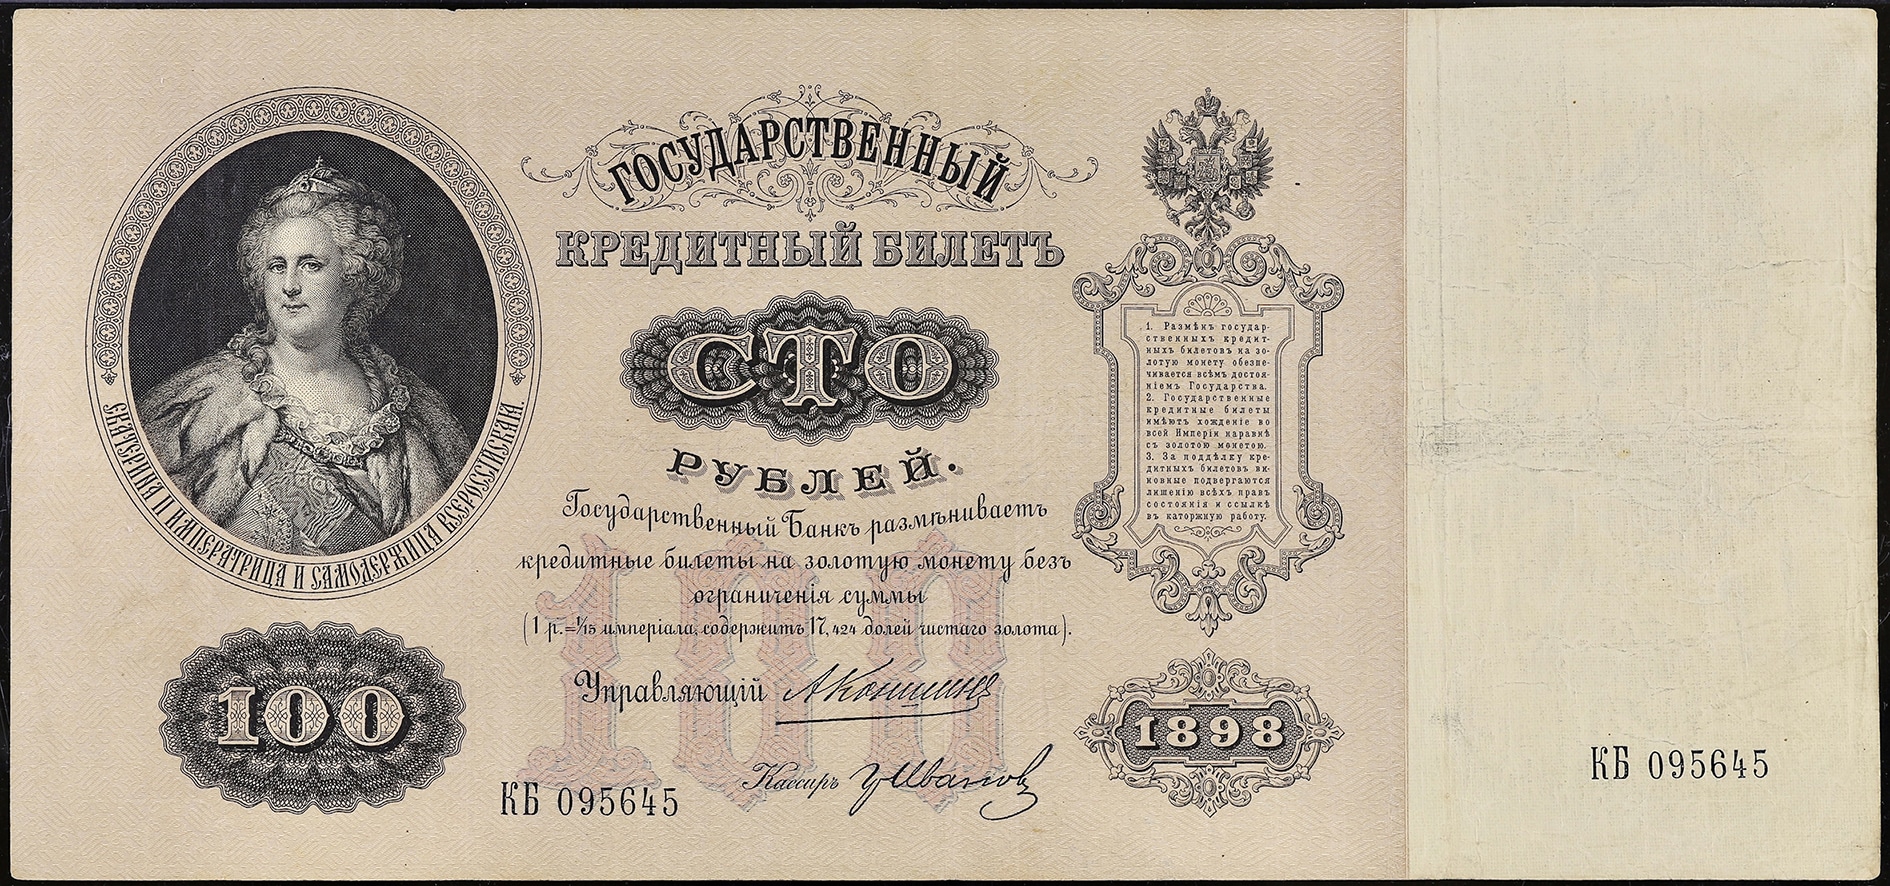 ЕКАТЕРИНА II ИМПЕРАТРИЦА И САМОДЕРЖИЦА ВСЕРОССІЙСКАЯ.
100
ГОСУДАРСТВЕННЫЙ
КРЕДИТНЫЙ БИЛЕТЪ
СТО
РУБЛЕЙ.
Государственный Банкъ размѣниваетъ
кредитные билеты на золотую монету безъ
ограниченія суммы
(1 р.=1/15 имперіала, содержитъ 17,424 долей чистаго золота).
100
Управляющій АКоншинъ
Кассиръ Иванов
КБ 095645
1. Размѣнъ государ-
ственныхъ кредит-
ныхъ билетовъ на зо-
лотую монету обезпе-
чивается всѣмъ достоя-
ніемъ Государства.
2. Государственные
кредитные билеты
имѣютъ хожденіе во
всей Имперіи наравнѣ
съ золотою монетою.
3. За поддѣлку кре-
дитныхъ билетовъ ви-
новные подвергаются
лишенію всѣхъ правъ
состоянія и ссылкѣ
въ каторжную работу.
1898
КБ 095645